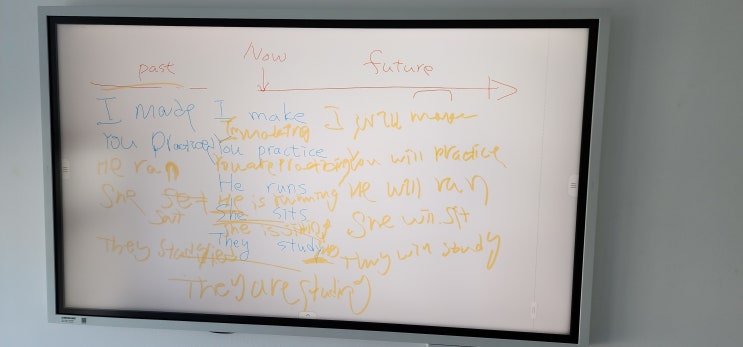 Now
past future
I made I make I will
You practiced You practice You will practice
He ran He runs He will run
He is running
She set sat She sits She will sit
She is sitting
They studied They study They will study
They are studing